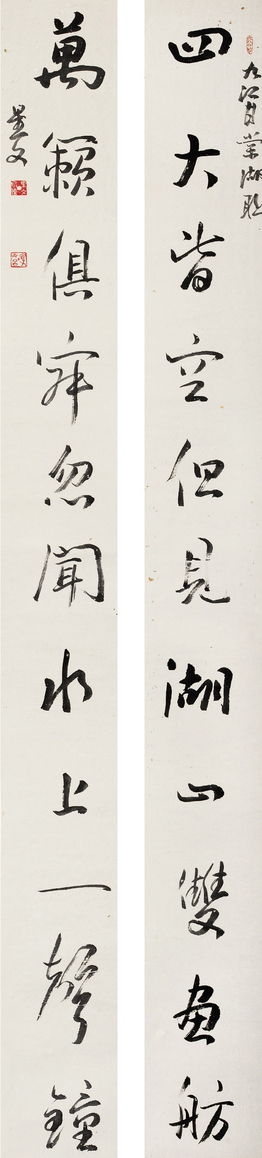 九江甘棠湖联
四大皆空但見湖山雙畫舫
萬籟俱寂忽聞水上一聲鐘
景文